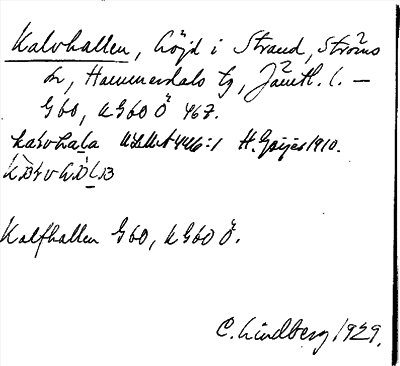 Kalvhallen, höjd i Strand, Ströms
sn, Hammerdals tg, Jämtl. l. —
G 60, KG 60 Ö 467.
446:1 H. Geijer 1910.
Kalfhallen G 60, KG 60 Ö.
C. Lindberg 1929.